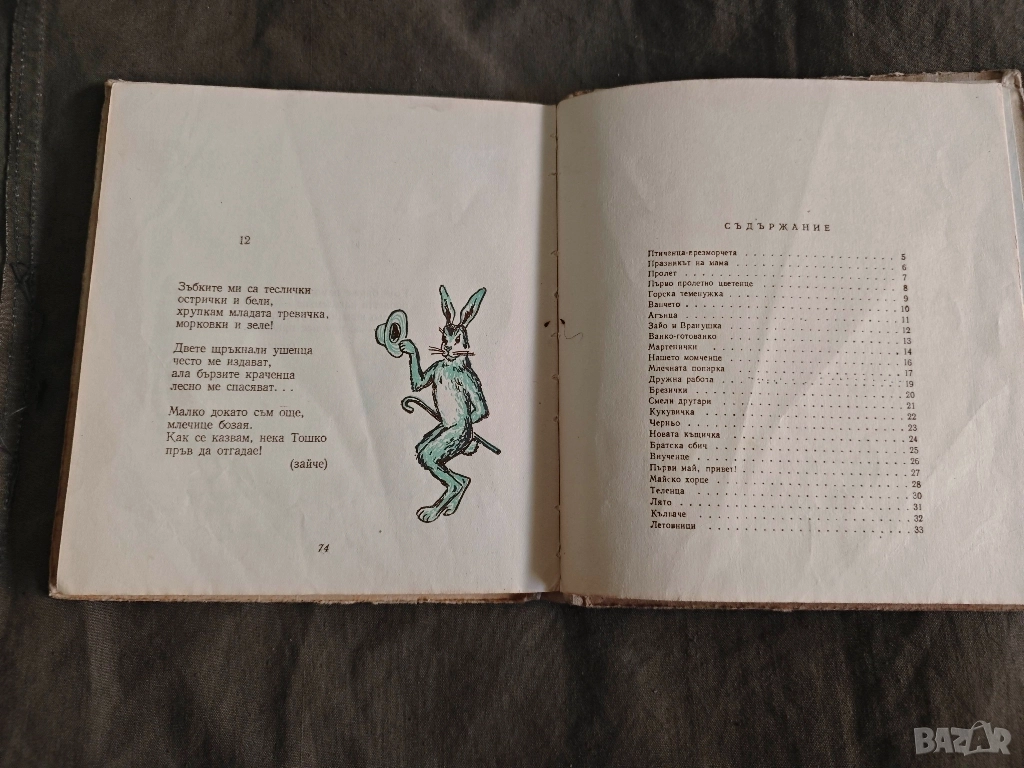 12
Зъбките ми са теслички
острички и бели,
хрупкам младата тревичка,
морковки и зеле!
Двете щръкнали ушенца
често ме издават,
ала бързите краченца
лесно ме спасяват. . .
Малко докато съм още,
млечице бозая.
Как се казвам, нека Тошко
пръв да отгадае!
(зайче)
74
СЪДЪРЖАНИЕ
Птиченца-презморчета 5
Празникът на мама 6
Пролет 7
Първо пролетно цветенце 8
Горска теменужка 9
Ванчето 10
Агънца 11
Зайо и Вранушка 12
Ванко-готованко 13
Мартенички 14
Нашето момченце 16
Млечната попарка 17
Дружна работа 19
Брезички 20
Смели другари 21
Кукувичка 22
Черньо 23
Новата къщичка 24
Братска сбич 25
Внученце 26
Първи май, привет! 27
Майско хорце 28
Теленца 30
Лято 31
Кълваче 32
Летовници 33
BAZAR